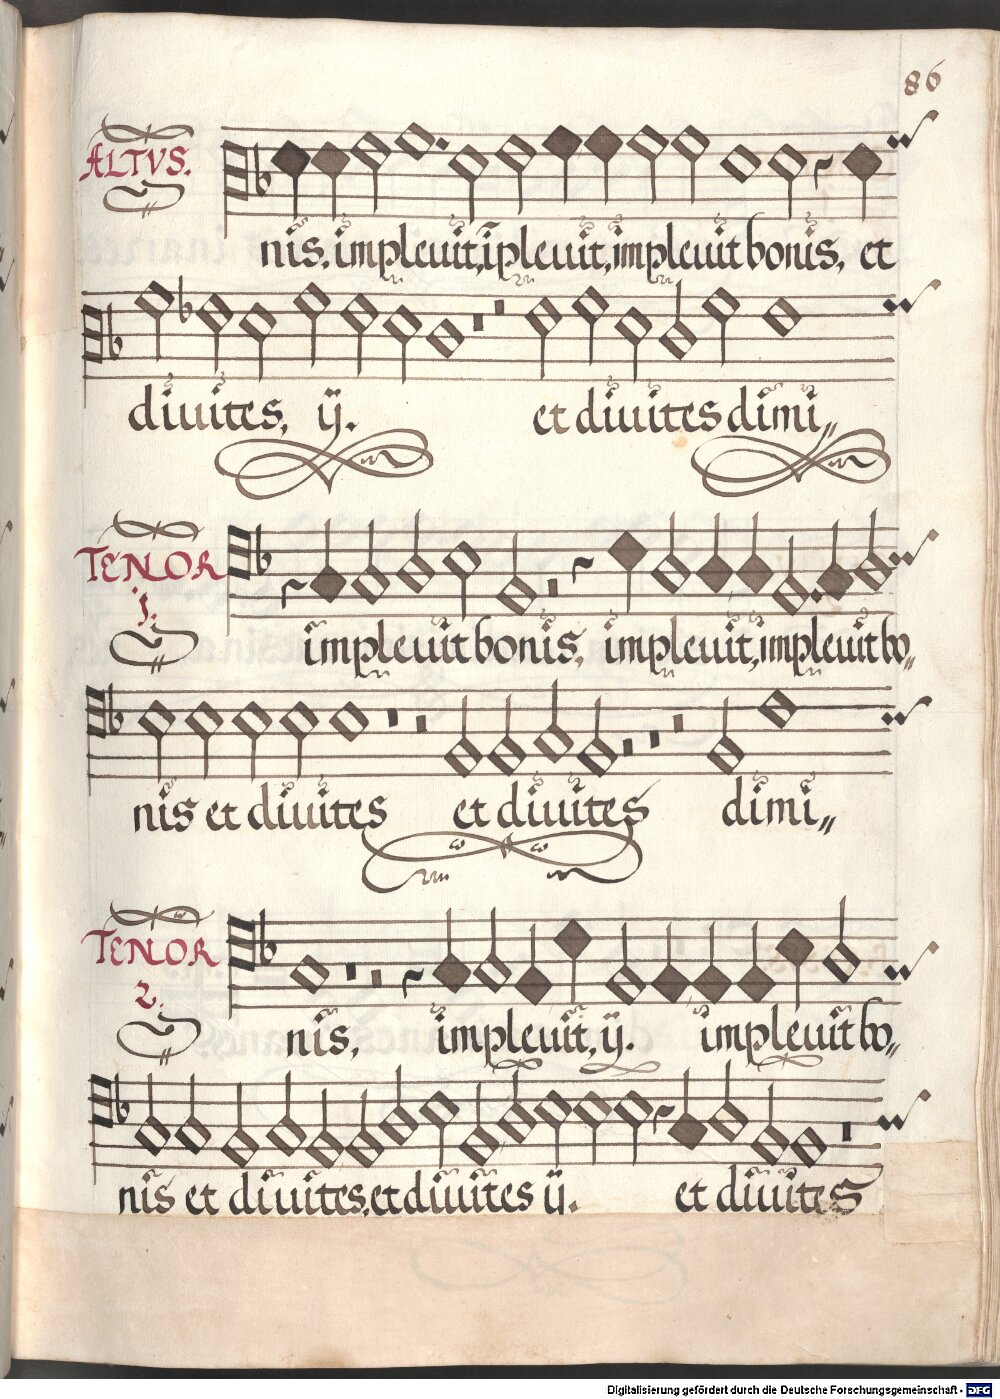 86
ALTVS.
nis, impleuit, ipleuit, impleuit bonis, et
diuites, ij. et diuites dimi,,
TENOR
1.
impleuit bonis, impleuit, impleuit bo,,
nis et diuites et diuites dimi,,
TENOR
2.
nis, impleuit, ij. impleuit bo,,
nis et diuites, et diuites ij. et diuites
Digitalisierung gefördert durch die Deutsche Forschungsgemeinschaft - DFG